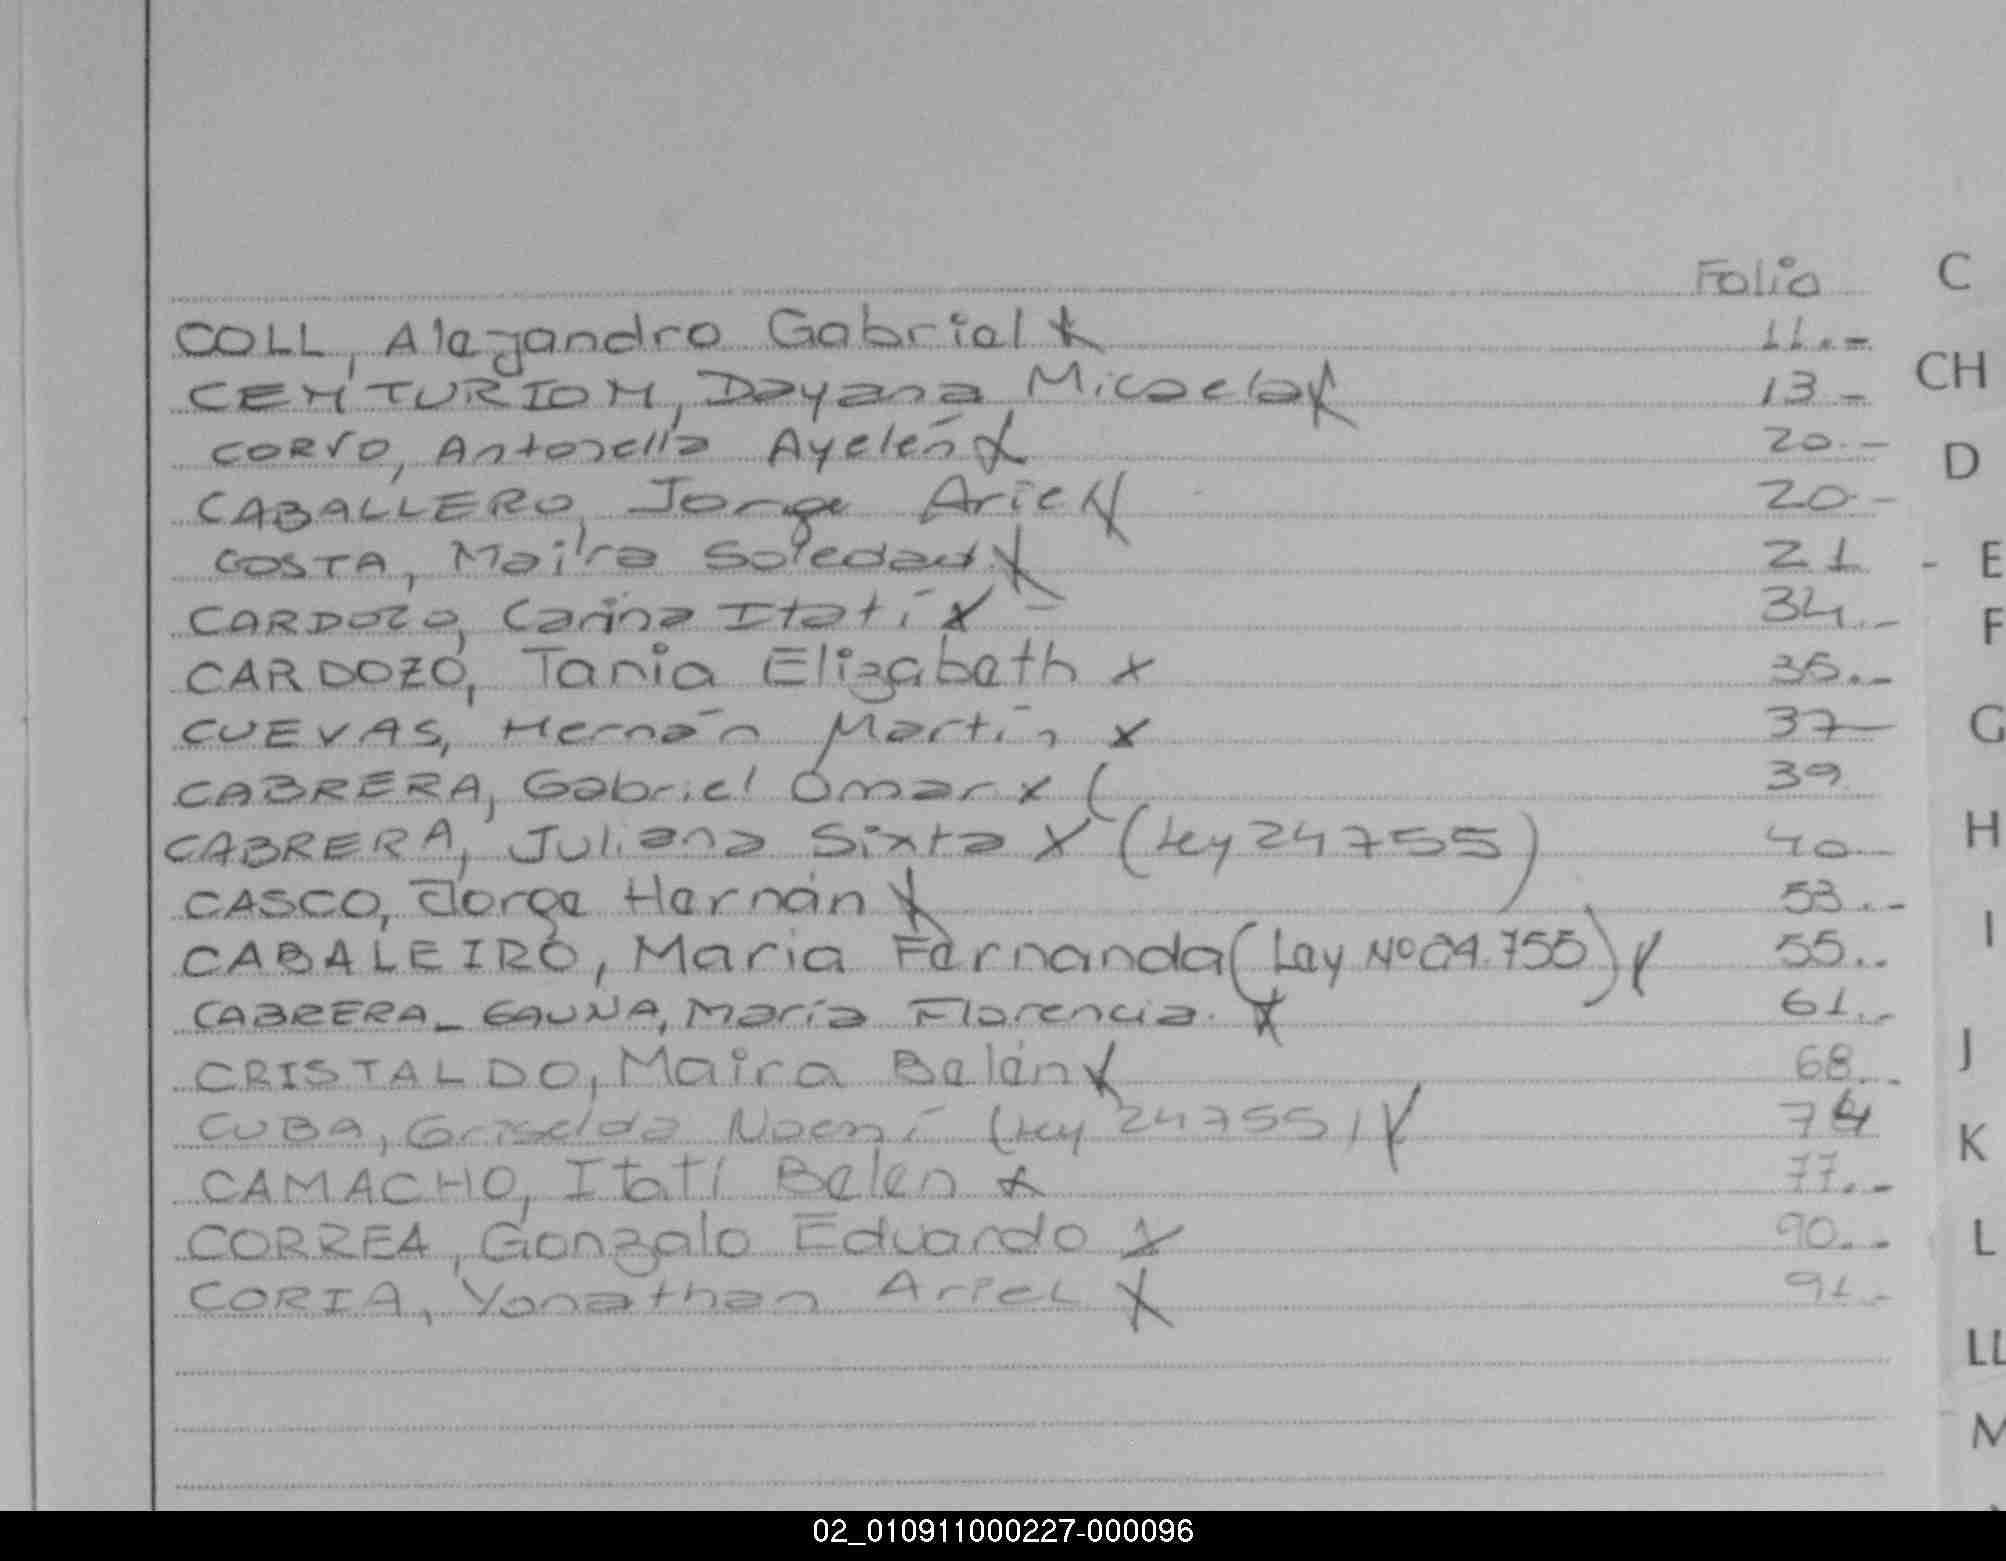 Folio C
COLL, Alejandro Gabriel x 11.-
CENTURION, Dayana Micaela x 13 - CH
CORVO, Antonella Ayelén x 20.-
CABALLERO, Jorge Ariel x 20.- D
COSTA, Maira Soledad x 21 - E
CARDOZO, Carina Itatí x - 34.- F
CARDOZO, Tania Elizabeth x 36.-
CUEVAS, Hernán Martín x 37- G
CABRERA, Gabriel Omar x ( 39
CABRERA, Juliana Sixta x (Ley 24755) 40- H
CASCO, Jorge Hernán x 53.-
CABALEIRO, Maria Fernanda (Ley Nº 24.755) x 55.. I
CABRERA_GAUNA, María Florencia. x 61.-
CRISTALDO, Maira Belén x 68.- J
CUBA, Griselda Noemí (Ley 24755) x 74 K
CAMACHO, Itatí Belen x 77.-
CORREA, Gonzalo Eduardo x 90.- L
CORIA, Yonathan Ariel x 91.-
LL
M
02_010911000227-000096